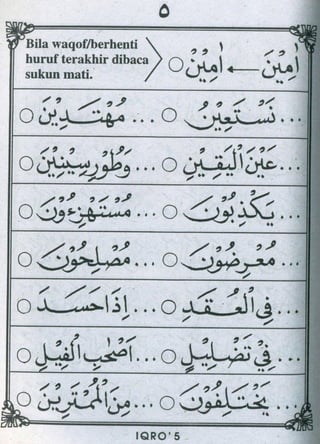 ٥
Bila waqof/berhenti
huruf terakhir dibaca
sukun mati.
اٰمِيْنَ ← اٰمِيْنْ ○
... نَسْتَعِيْنُ ○ ... مُهْتَدِيْنَ ○
... عَيْنَ الْيَقِيْنِ ○ ... وَطُوْرِ سِيْنِيْنَ ○
... يَكْذِبُوْنَ ○ ... مُسْتَهْزِءُوْنَ ○
... مُعْرِضُوْنَ ○ ... مُصْلِحُوْنَ ○
... فِى الْعُقَدِ ○ ... اِذَا حَسَدَ ○
... فِيْ تَضْلِيْلٍ ○ ... اَصْحٰبِ الْفِيْلِ ○
... يَخْتَلِفُوْنَ ○ ... مِنَ الْمُمْتَرِيْنَ ○
IQRO' 5